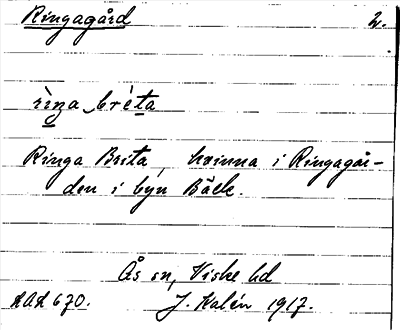 Ringagård 2.
rìŋa brèta
Ringa Brita, kvinna i Ringagår-
den i byn Bäck.
Ås sn, Viske hd
J. Kalén 1917.